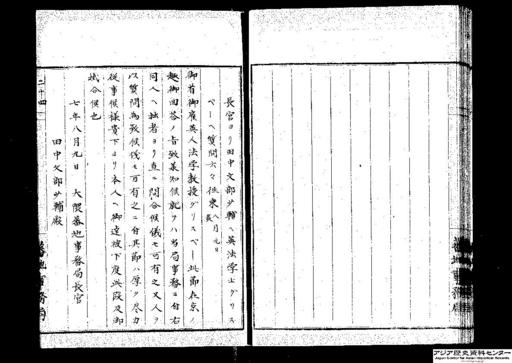 長官ヨリ田中文部少輔ヘ英法学士グリス
ベーヘ質問云々徃柬 八月九日
御省御雇英人法学教授グリスベー此節在京ノ
趣御回答ノ旨致承知候就テハ当局事務ニ付右
同人ヘ拙者ヨリ直ニ問合候儀モ可有之又人ヲ
以質問為致候儀モ可有之ニ付其節ハ厚ク尽力
従事候様貴下ヨリ本人ヘ御達被下度此段及御
照会候也
七年八月九日 大隈蕃地事務局長官
田中文部少輔殿
二十四
蕃地事務局
アジア歴史資料センター
Japan Center for Asian Historical Records